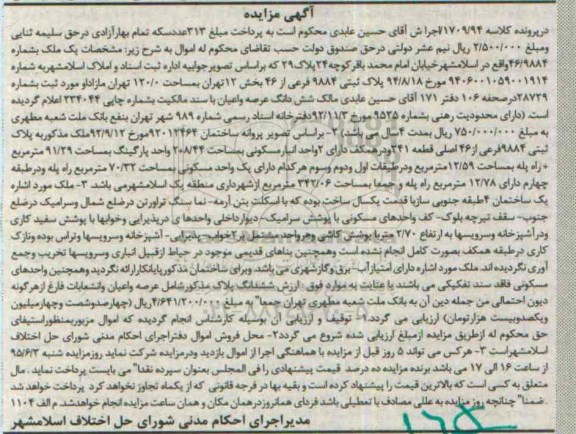 آگهی مزایده
درپرونده کلاسه ۱۷۰۹/۹۴اجرا ش آقای حسین عابدی محکوم است به پرداخت مبلغ ۳۱۳عددسکه تمام بهارآزادی درحق سلیمه ثنایی
ومبلغ ۲/۵۰۰/۰۰۰ ریال نیم عشر دولتی درحق صندوق دولت حسب تقاضای محکوم له اموال به شرح زیر: مشخصات یک ملک بشماره
۴۶/۹۸۸۴واقع در اسلامشهرخیابان امام محمد باقرکوچه ۲۴پلاک۲۹ که براساس تصویرجوابیه اداره ثبت اسناد و املاک اسلامشهربه شماره
۹۴۰۶۰۰۱۰۵۹۰۰۱۹۱۴ مورخ ۹۴/۸/۱۸ پلاک ثبتی ۹۸۸۴ فرعی از ۴۶ بخش ۱۲تهران بمساحت ۱۲۰/۰ تهران مازاداو مورد ثبت بشماره
۲۸۷۲۹درصفحه ۱۰۶ دفتر ۱۷۱ آقای حسین عابدی مالک شش دانگ عرصه واعیان با سند مالکیت بشماره چاپی ۲۳۴۰۴۴ اعلام گردیده
است. (دارای محدودیت رهنی بشماره ۹۵۲۵ مورخ ۹۲/۱۱/۳دفترخانه اسناد رسمی شماره ۹۸۹ شهر تهران بنفع بانک ملت شعبه مطهری
به مبلغ ۷۵۰/۰۰۰/۰۰۰ ریال بمدت ۴سال می باشد). ۲- براساس تصویر پروانه ساختمان ۹۲۰۱۲۴۶۴مورخ۹۲/۹/۱۲ملک مذکوربه پلاک
ثبتی ۹۸۸۴فرعی از۴۶ اصلی قطعه ۳۴۱ ودرهمکف دارای ۲واحد انبارمسکونی بمساحت ۲۰۸/۴۴ واحد پارکینگ بمساحت ۹۱/۲۹ مترمربع
+راه پله بمساحت ۱۲/۵۹مترمربع ودرطبقات اول ودوم وسوم هرکدام دارای یک واحد مسکونی بمساحت ۷۰/۳۲ مترمربع راه پله ودرطبقه
چهارم دارای ۱۲/۷۸ مترمربع راه پله و جمعا بمساحت ۳۴۲/۰۶ مترمربع ازشهرداری منطقه یک اسلامشهرمی باشد. ۳- ملک مورد اشاره
یک ساختمان ۴طبقه جنوبی سازبا قدمت یکسال ساخت بوده که با اسکلت بتن آرمه- نما سنگ تراورتن درضلع شمال وسرامیک درضلع
جنوب- سقف تیرچه بلوک- کف واحدهای مسکونی با پوشش سرامیک-دیوارداخلی واحدها ی درپذیرایی وخوابها با پوشش سفید کاری
ودرآشپزخانه وسرویسها به ارتفاع ۲/۷۰ متربا پوشش کاشی وهرواحد مشتمل بر ۲خواب- پذیرایی - آشپزخانه وسرویسها وتراس بوده ونازک
کاری درطبقه همکف بصورت کامل انجام نشده است وهمچنین بناهای قدیمی موجود در حیاط ازقبیل انباری وسرویسها تخریب وجمع
آوری نگردیده اند. ملک مورد اشاره دارای امتیاز آب- برق وگازشهری می باشد وبرای ساختمان مذکورپایانکارارائه نگردید وهمچنین واحدهای
مسکونی فاقد سند تفکیکی می باشند با عنایت به موارد فوق ، ارزش ششدانگ پلاک مذکورشامل عرصه واعیان وانشعابات فارغ ازهرگونه
دیون احتمالی من جمله دین آن به بانک ملت شعبه مطهری تهران جمعا" به مبلغ ۴/۶۴۱/۲۰۰/۰۰۰ریال (چهارصدوشصت وچهارمیلیون
ویکصدوبیست هزارتومان) ارزیابی می گردد.۱- توقیف و ارزیابی آن بوسیله کارشناس انجام گردیده که اموال مزبوربمنظوراستیفای
حق محکوم له ازطریق مزایده ازمبلغ ارزیابی شده شروع می گردد۲- محل فروش اموال دفتراجرای احکام مدنی شورای حل اختلاف
اسلامشهراست ۳- هرکس می تواند ۵ روز قبل از مزایده با هماهنگی اجرا از اموال بازدید ودرمزایده شرکت نماید روزمزایده شنبه ۹۵/۶/۳
از ساعت ۱۶ الی ۱۷ می باشد برنده مزایده ده درصد قیمت پیشنهادی را فی المجلس بعنوان سپرده نقدا" می بایست پرداخت نماید . مال
متعلق به کسی است که بالاترین قیمت را پیشنهاد کرده است و بقیه بها در فرجه قانونی که از یکماه تجاوز نخواهد کرد پرداخت خواهد شد
. ضمنا" چنانچه روز مزایده به عللی مصادف با تعطیلی باشد فردای همانروزدرهمان مکان و همان ساعت مزایده انجام خواهدشد. م الف ۱۱۰۴
مدیراجرای احکام مدنی شورای حل اختلاف اسلامشهر